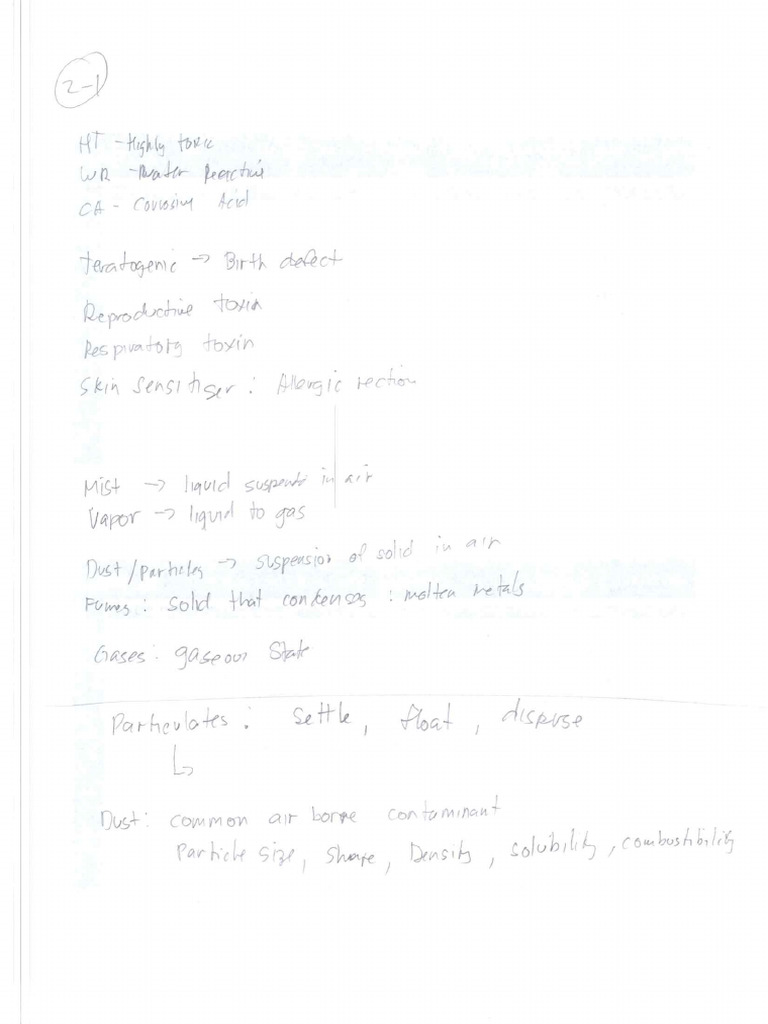 2-1
HT - Highly toxic
WR - Water Reactive
CA - Corrosive Acid
Teratogenic → Birth defect
Reproductive toxin
Respiratory toxin
Skin Sensitiser : Allergic rection
Mist → liquid suspend in air
Vapor → liquid to gas
Dust/particles → suspension of solid in air
Fumes : solid that condenses : molten metals
Gases : gaseous State
Particulates : settle, float, disperse
↳
Dust : common air borne contaminant
Particle size, shape, Density, solubility, combustibility